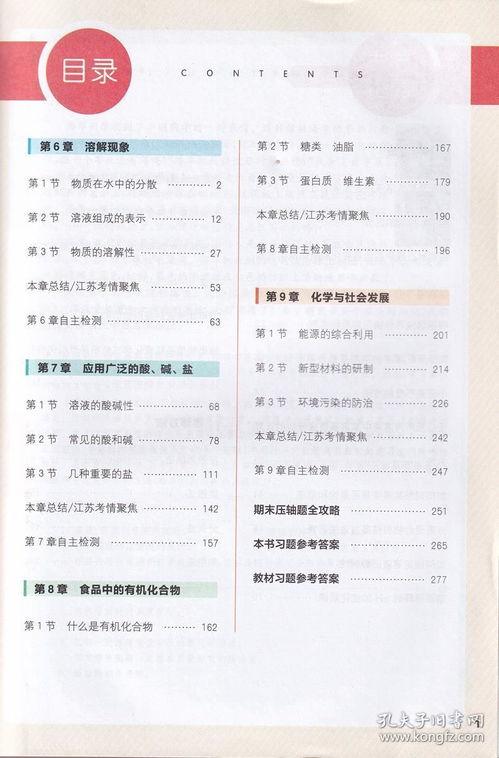 目录
CONTENTS
第6章 溶解现象
第1节 物质在水中的分散 ………… 2
第2节 溶液组成的表示 ………… 12
第3节 物质的溶解性 ………… 27
本章总结/江苏考情聚焦 ………… 53
第6章自主检测 ………… 63
第7章 应用广泛的酸、碱、盐
第1节 溶液的酸碱性 ………… 68
第2节 常见的酸和碱 ………… 78
第3节 几种重要的盐 ………… 111
本章总结/江苏考情聚焦 ………… 142
第7章自主检测 ………… 157
第8章 食品中的有机化合物
第1节 什么是有机化合物 ………… 162
第2节 糖类 油脂 ………… 167
第3节 蛋白质 维生素 ………… 179
本章总结/江苏考情聚焦 ………… 190
第8章自主检测 ………… 196
第9章 化学与社会发展
第1节 能源的综合利用 ………… 201
第2节 新型材料的研制 ………… 214
第3节 环境污染的防治 ………… 226
本章总结/江苏考情聚焦 ………… 242
第9章自主检测 ………… 247
期末压轴题全攻略 ………… 251
本书习题参考答案 ………… 265
教材习题参考答案 ………… 277
1
孔夫子旧书网
www.kongfz.com